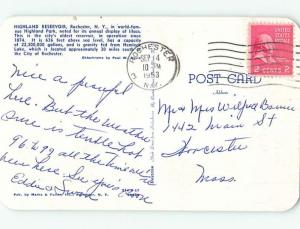 HIGHLAND RESERVOIR, Rochester, N. Y., in world-fam-
ous Highland Park, noted for its annual display of lilacs.
This is the city's oldest reservoir, in operation since
1874. It is 636 feet above sea level, has a capacity
of 22,500,000 gallons, and is gravity fed from Hemlock
Lake, which is located approximately 30 miles south of
the City of Rochester.
ROCHESTER
SEP 14
10 PM
1953
N.Y.
2 CENTS 2
POST CARD
Address
Nice & peaceful
here. But the weather
sure is terrible hot
96 & 99 all the time we've
been here. See you soon
Eddie &
Mr & Mrs
1442 Main St
Worcester
Mass.